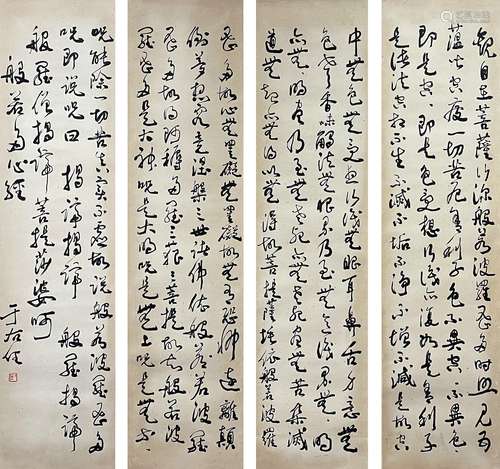 觀自在菩薩行深般若波羅蜜多時照見五
蘊皆空度一切苦厄舍利子色不異空空不異色色
即是空空即是色受想行識亦復如是舍利子
是諸法空相不生不滅不垢不淨不增不減是故空
中無色無受想行識無眼耳鼻舌身意無
色聲香味觸法無眼界乃至無意識界無無明
亦無無明盡乃至無老死亦無老死盡無苦集滅
道無智亦無得以無所得故菩提薩埵依般若波羅
蜜多故心無罣礙無罣礙故無有恐怖遠離顛
倒夢想究竟涅槃三世諸佛依般若波羅
蜜多故得阿耨多羅三藐三菩提故知般若波
羅蜜多是大神咒是大明咒是無上咒是無等等
咒能除一切苦真實不虛故說般若波羅蜜多
咒即說咒曰 揭諦揭諦 般羅揭諦
般羅僧揭諦 菩提莎婆呵
般若多心經
于右任